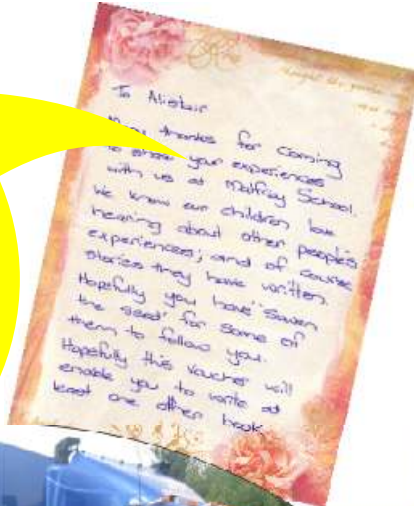 To Alistair
thanks for coming
to share your experiences
with us at Malfroy School.
We know our children love
hearing about other people's
experiences; and of course
stories they have written.
Hopefully you have 'sowen
the seed' for some of
them to follow you.
Hopefully this voucher will
enable you to write at
least one other book